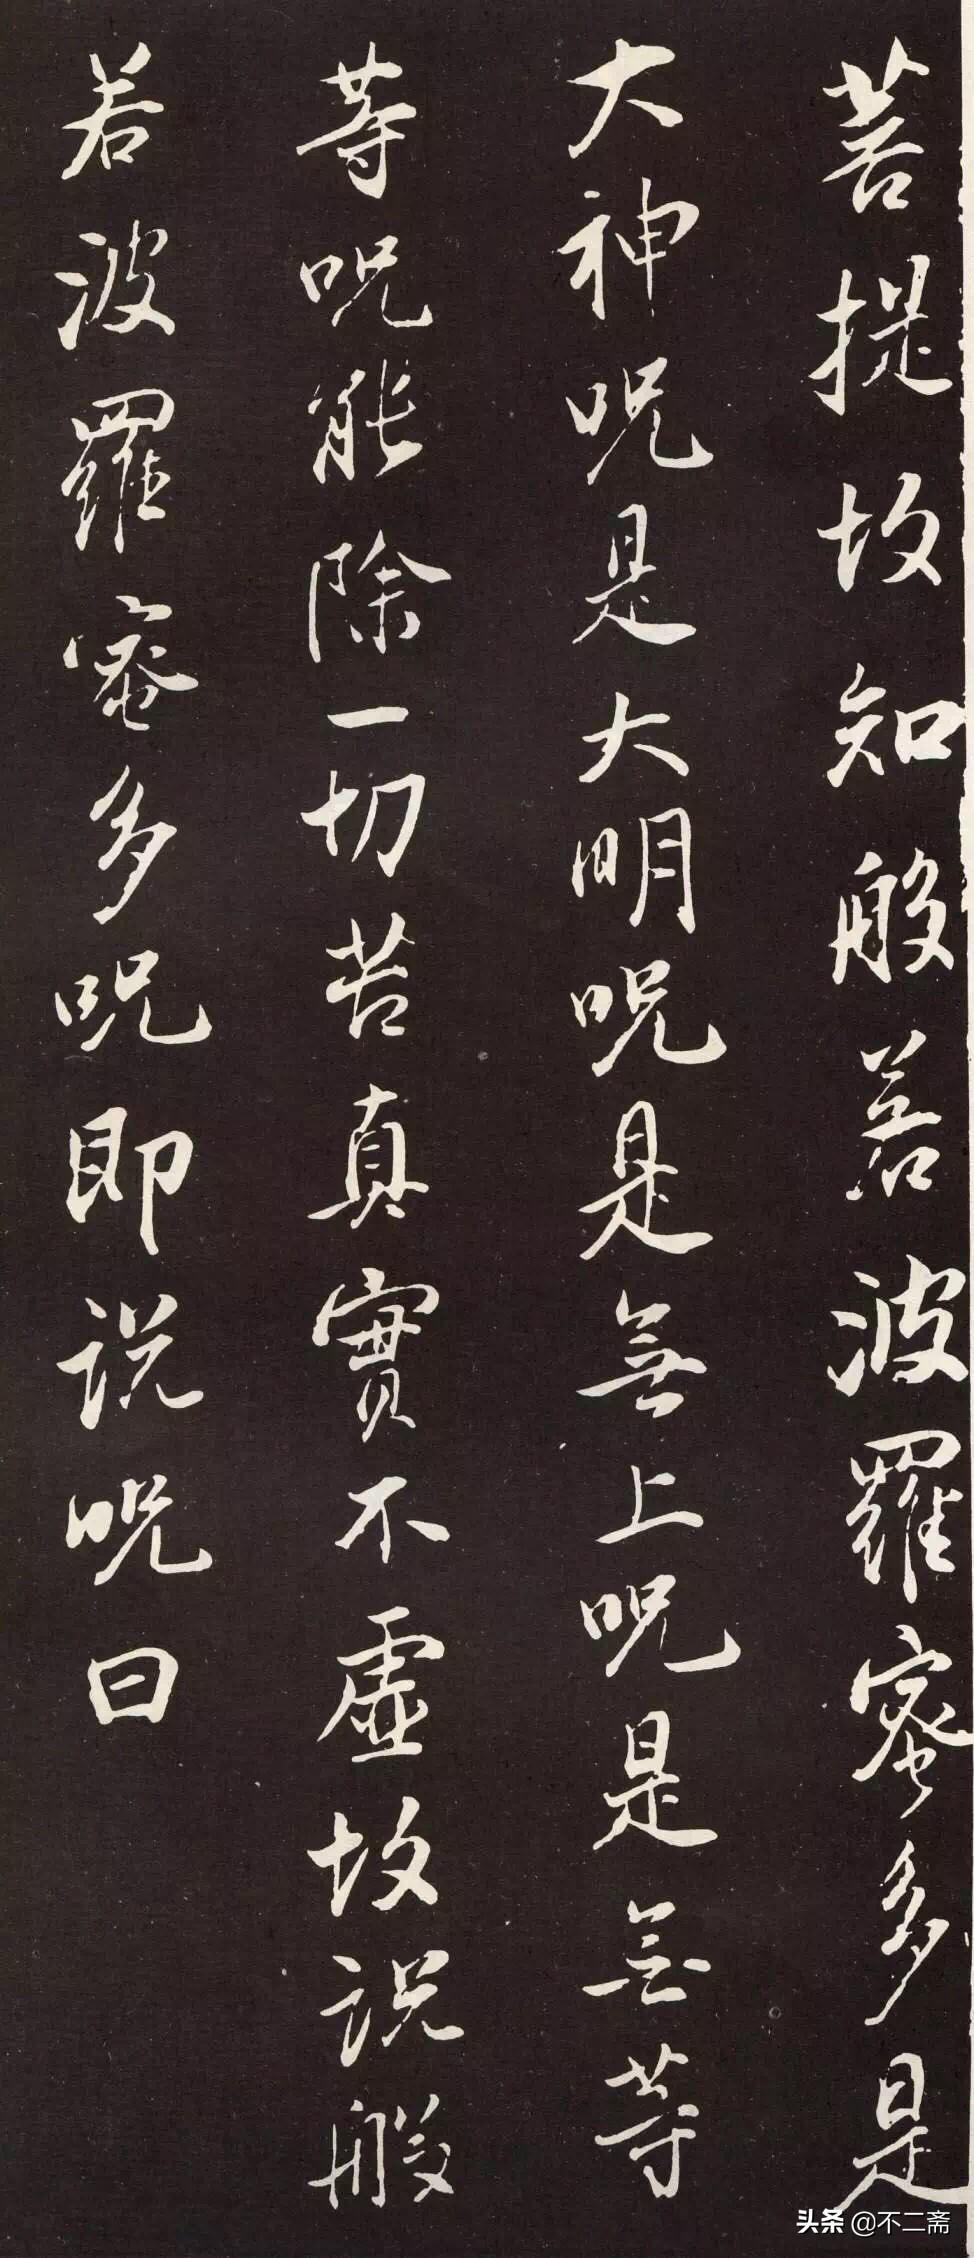 菩提故知般若波羅蜜多是
大神呪是大明呪是無上呪是無等
等呪能除一切苦真實不虛故說般
若波羅蜜多呪即說呪曰
头条 @不二斋